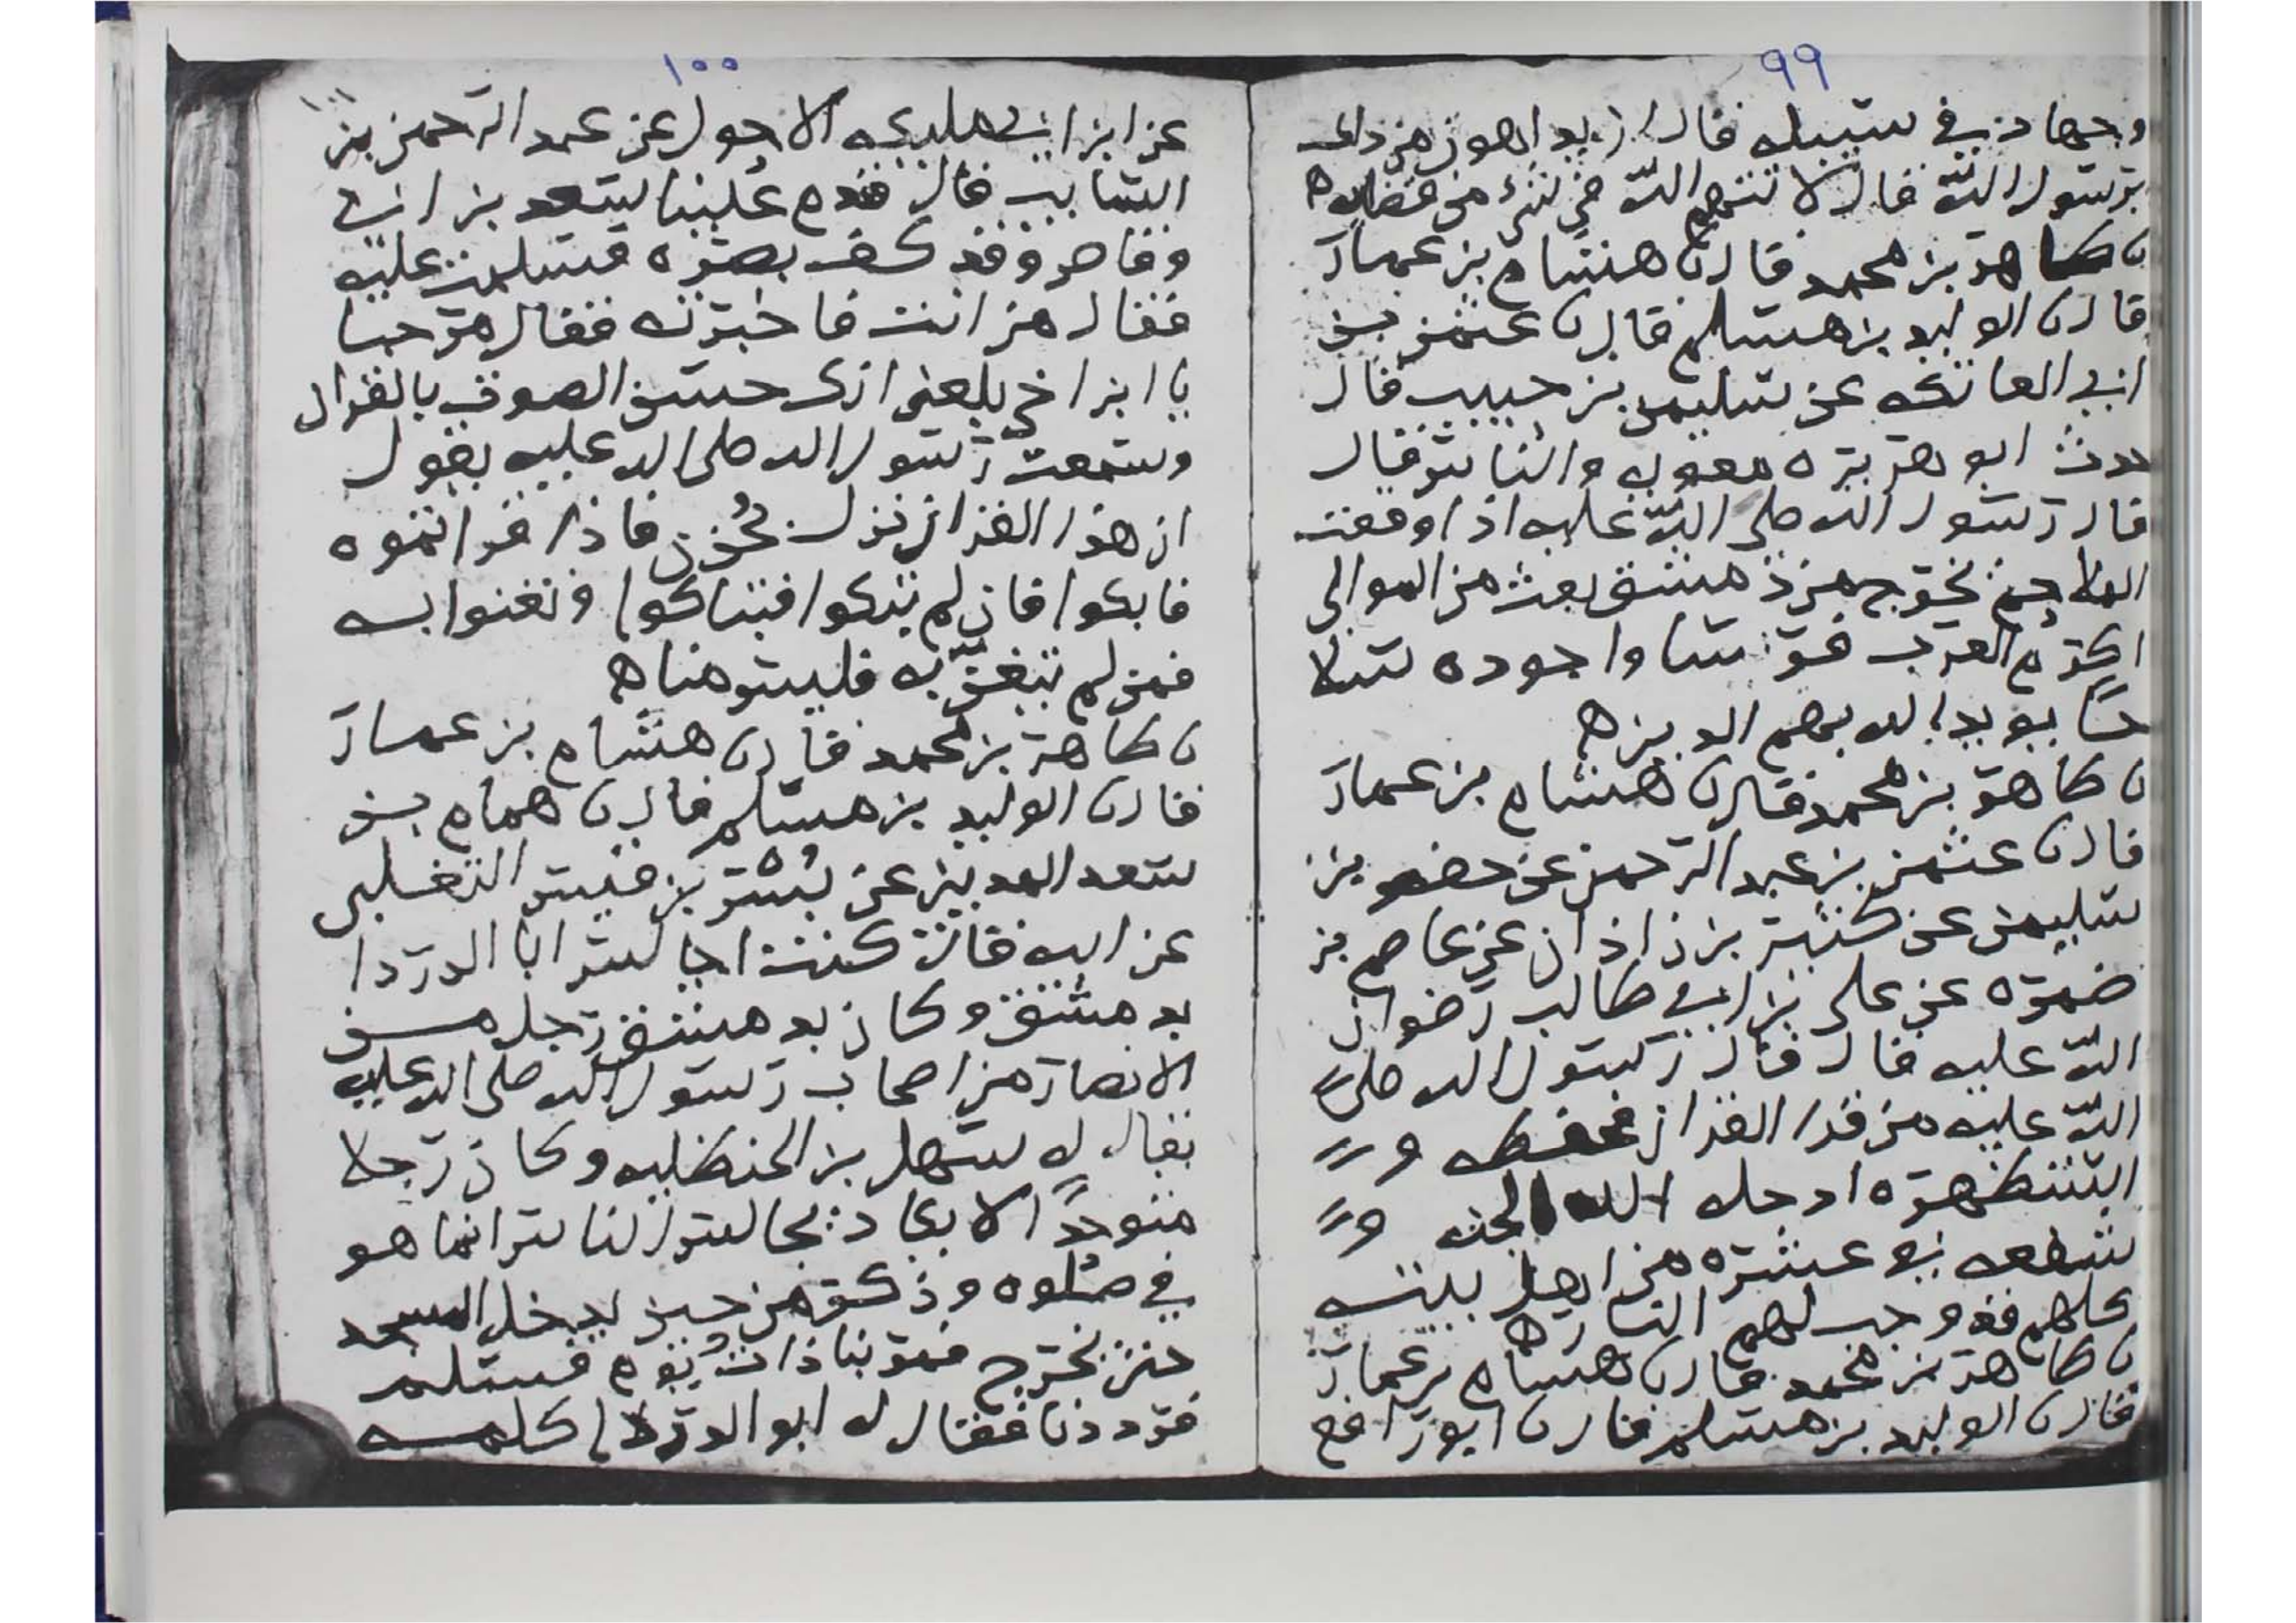 ٩٩
وجهاد في سبيله قال اريد اهون من ذلك
يرسول الله قال لا تتهم الله في شيء من قضايه ه
ن طاهر بن محمد قال ن هشام بن عمار
قال ن الوليد بن مسلم قال ن عثمن بن
ابي العاتكه عن سليمن بن حبيب قال
حدث ابو هريره معويه والناس قال
قال رسول الله صلى الله عليه اذا وقعت
الملاحم خرج من دمشق بعث من الموالي
اكرم العرب فرسا واجوده سلا
حا يويد الله بهم الدين ه
ن طاهر بن محمد قال ن هشام بن عمار
قال ن عثمن بن عبد الرحمن عن حفص بن
سليمن عن كثير بن زاذان عن عاصم بن
ضمره عن علي بن ابي طالب رضوان
الله عليه قال قال رسول الله صلى
الله عليه من قرا القران فحفظه و
استظهره ادخله الله الجنه و
شفعه في عشره من اهل بيته
كلهم قد وجب لهم النار ه
ن طاهر بن محمد قال ن هشام بن عمار
قال ن الوليد بن مسلم قال ن ابو رافع
١٠٠
عن ابن ابي مليكه الاحول عن عبد الرحمن بن
السايب قال قدم علينا سعد بن ابي
وقاص وقد كف بصره فسلمت عليه
فقال من انت فاخبرته فقال مرحبا
يا ابن اخي بلغني انك حسن الصوت بالقران
وسمعت رسول الله صلى الله عليه يقول
ان هذا القران نزل بحُزن فاذا قراتموه
فابكوا فان لم تبكوا فتباكوا وتغنوا به
فمن لم يتغنّ به فليس منا ه
ن طاهر بن محمد قال ن هشام بن عمار
قال ن الوليد بن مسلم قال ن همام بن
سعد المديني عن بُسر بن قيس التغلبي
عن ابيه قال كنت اجالس ابا الدردا
بدمشق وكان بدمشق رجل من
الانصار من اصحاب رسول الله صلى الله عليه
يقال له سهل بن الحنظليه وكان رجلا
متوحدًا لا يكاد يجالس الناس انما هو
في صلوه وذكر من حين يدخل المسجد
حتى يخرج فمر بنا ذات يوم فسلم
فرددنا فقال له ابو الدردا كلمه